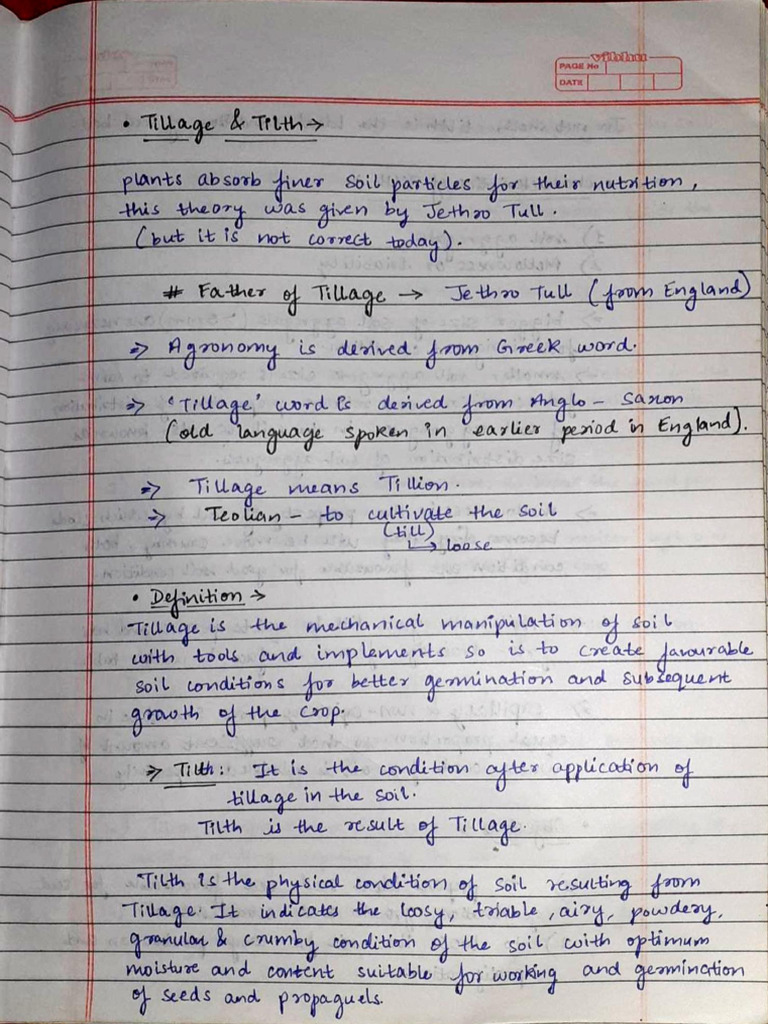 vibhu
PAGE No
DATE
• Tillage & Tilth →
plants absorb finer soil particles for their nutrition,
this theory was given by Jethro Tull.
(but it is not correct today).
# Father of Tillage → Jethro Tull (from England)
⇒ Agronomy is derived from Greek word.
⇒ 'Tillage' word is derived from Anglo - Saxon
(old language spoken in earlier period in England).
⇒ Tillage means Tillion.
⇒ Teolian - to cultivate the soil
(till)
↳ loose
• Definition →
Tillage is the mechanical manipulation of soil
with tools and implements so is to create favourable
soil conditions for better germination and subsequent
growth of the crop.
⇒ Tilth : It is the condition after application of
tillage in the soil.
Tilth is the result of Tillage.
Tilth is the physical condition of soil resulting from
Tillage. It indicates the loosy, triable, airy, powdery,
granular & crumby condition of the soil with optimum
moisture and content suitable for working and germination
of seeds and propaguels.